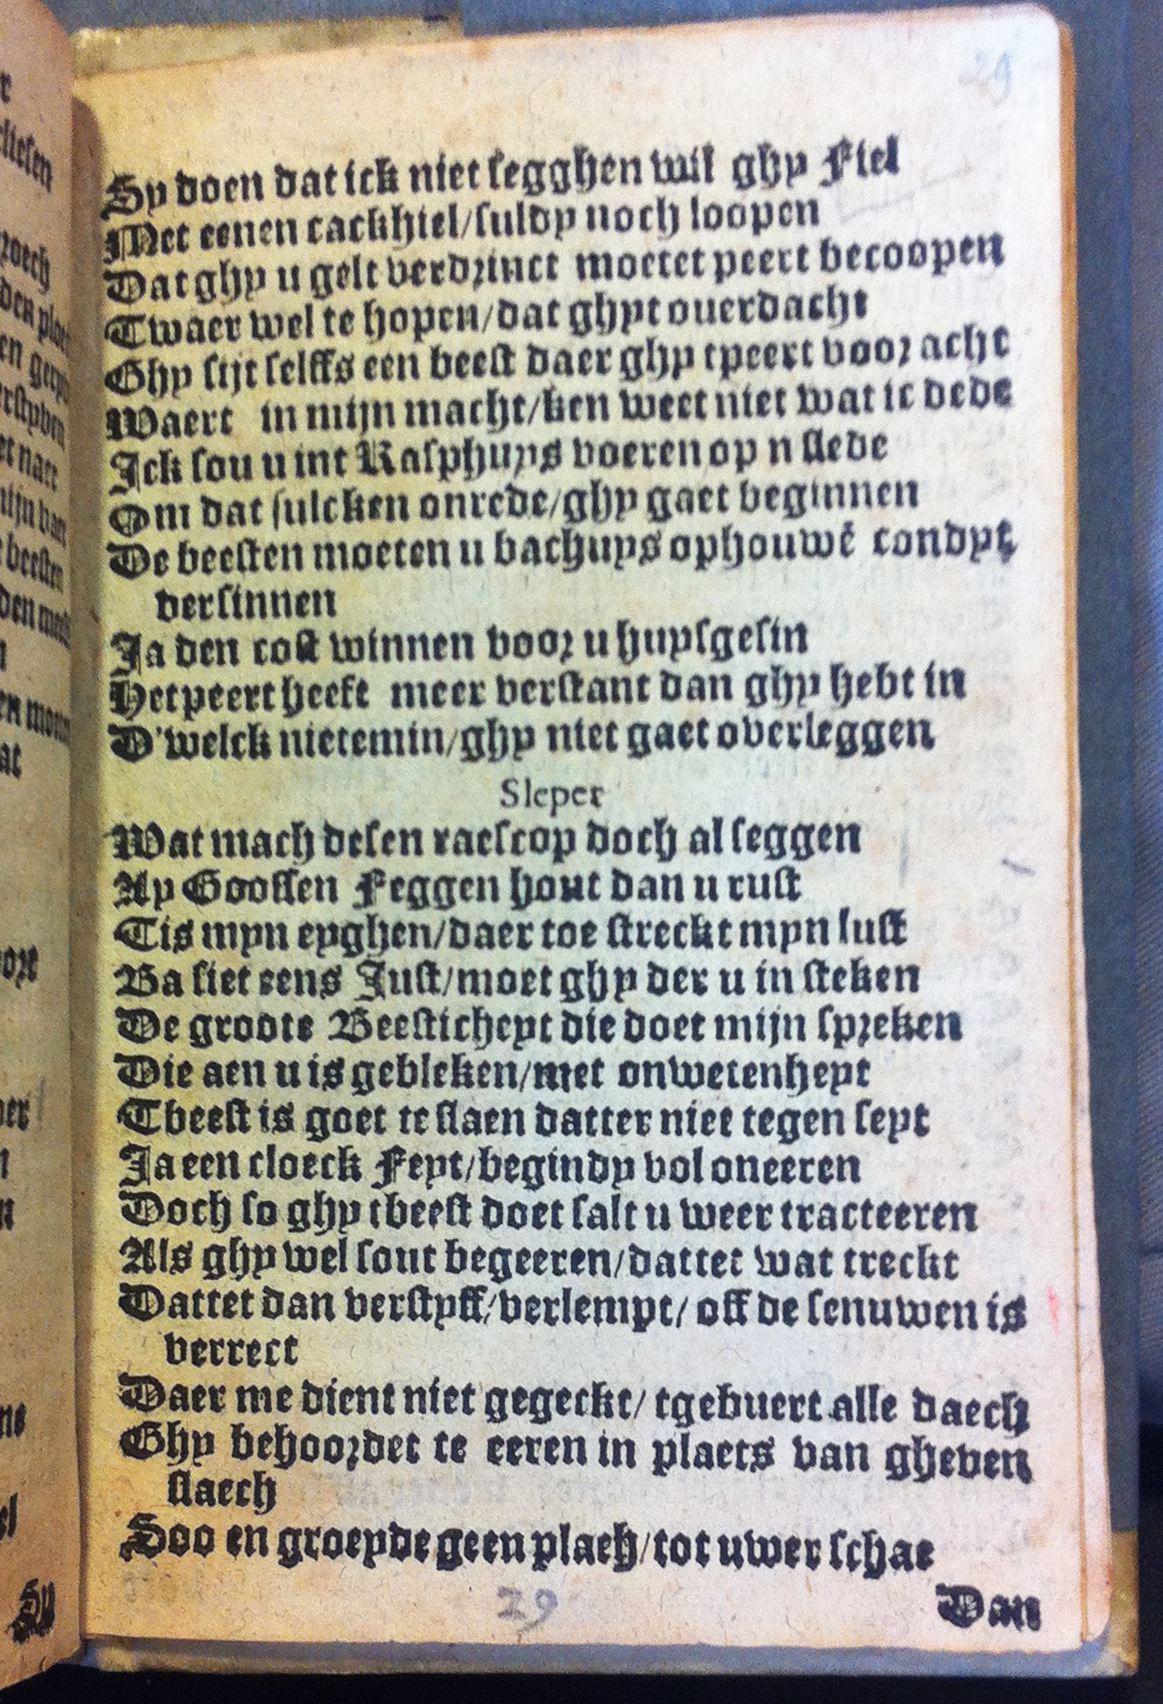 29
Sy doen dat ick niet segghen wil ghy Fiel
Met eenen cackhiel/suldy noch loopen
Dat ghy u gelt verdrinct moetet peert becoopen
Twaer wel te hopen/dat ghyt overdacht
Ghy sijt selffs een beest daer ghy tpeert voor acht
Waert in mijn macht/ken weet niet wat ic dede
Ick sou u int Rasphuys voeren op n slede
Om dat sulcken onrede/ghy gaet beginnen
De beesten moeten u bachuys ophouwē condyt
versinnen
Ja den cost winnen voor u huysgesin
Het peert heeft meer verstant dan ghy hebt in
D'welck nietemin/ghy niet gaet overleggen
Sleper
Wat mach desen raescop doch al seggen
Ay Goossen Feggen hout dan u rust
Tis myn eyghen/daer toe streckt myn lust
Ba siet eens Just/moet ghy der u in steken
De groote Beesticheyt die doet mijn spreken
Die aen u is gebleken/met onwetenheyt
Tbeest is goet te slaen datter niet tegen seyt
Ja een cloeck Feyt/begindy vol oneeren
Doch so ghy tbeest doet salt u weer tracteeren
Als ghy wel sout begeeren/dattet wat treckt
Dattet dan verstyff/verlempt/ off de senuwen is
verrect
Daer me dient niet gegeckt/ tgebuert alle daech
Ghy behoordet te eeren in plaets van gheven
slaech
Soo en groeyde geen plaeh/tot uwer schae
Dan
29